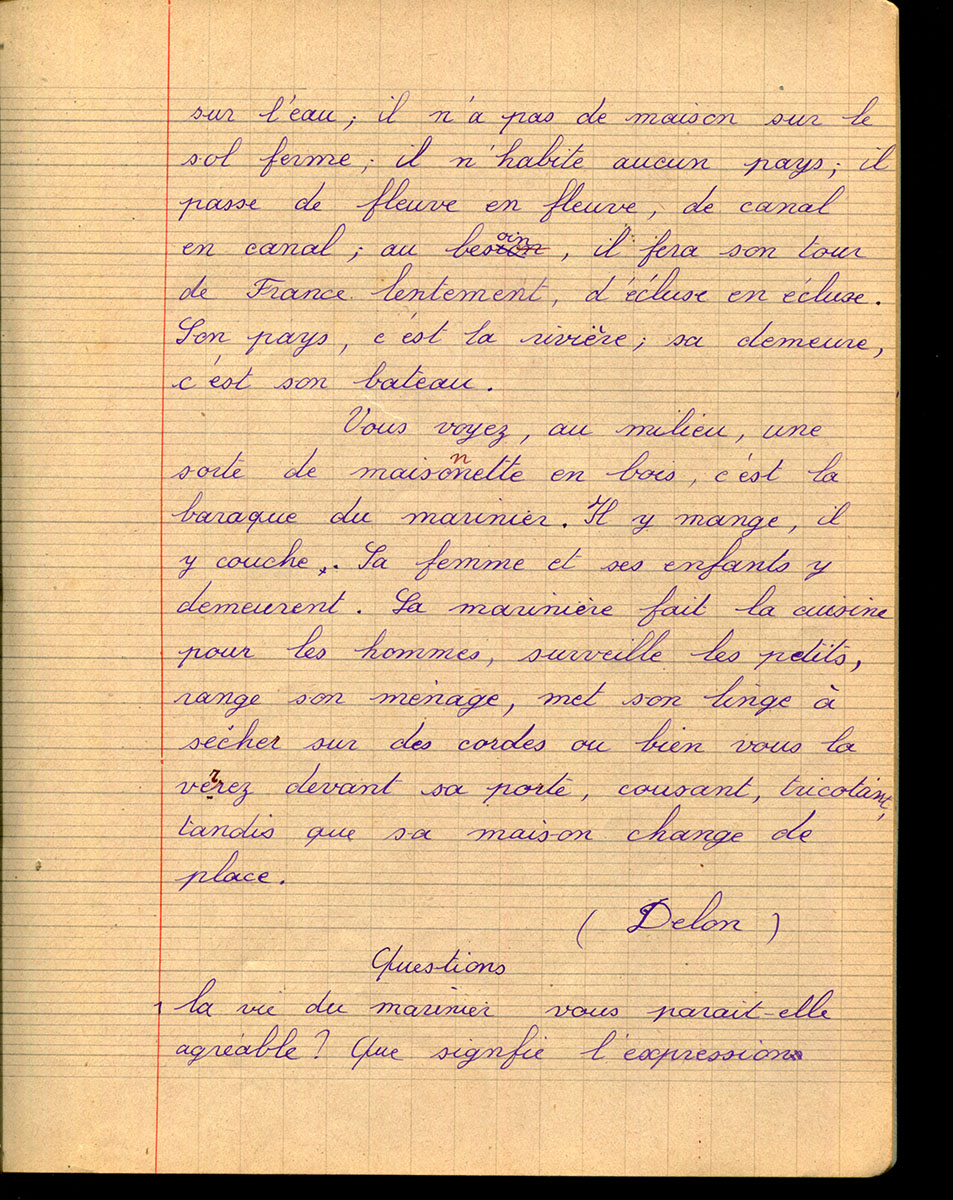 sur l'eau ; il n'a pas de maison sur le
sol ferme ; il n'habite aucun pays ; il
passe de fleuve en fleuve, de canal
en canal ; au besoin, il fera son tour
de France lentement, d'écluse en écluse.
Son pays, c'est la rivière ; sa demeure,
c'est son bateau.
Vous voyez, au milieu, une
sorte de maisonnette en bois, c'est la
baraque du marinier. Il y mange, il
y couche,. Sa femme et ses enfants y
demeurent. La marinière fait la cuisine
pour les hommes, surveille les petits,
range son ménage, met son linge à
sécher sur des cordes ou bien vous la
verrez devant sa porte, cousant, tricotant,
tandis que sa maison change de
place.
( Delon )
Questions
1 la vie du marinier vous parait-elle
agréable ? Que signfie l'expression